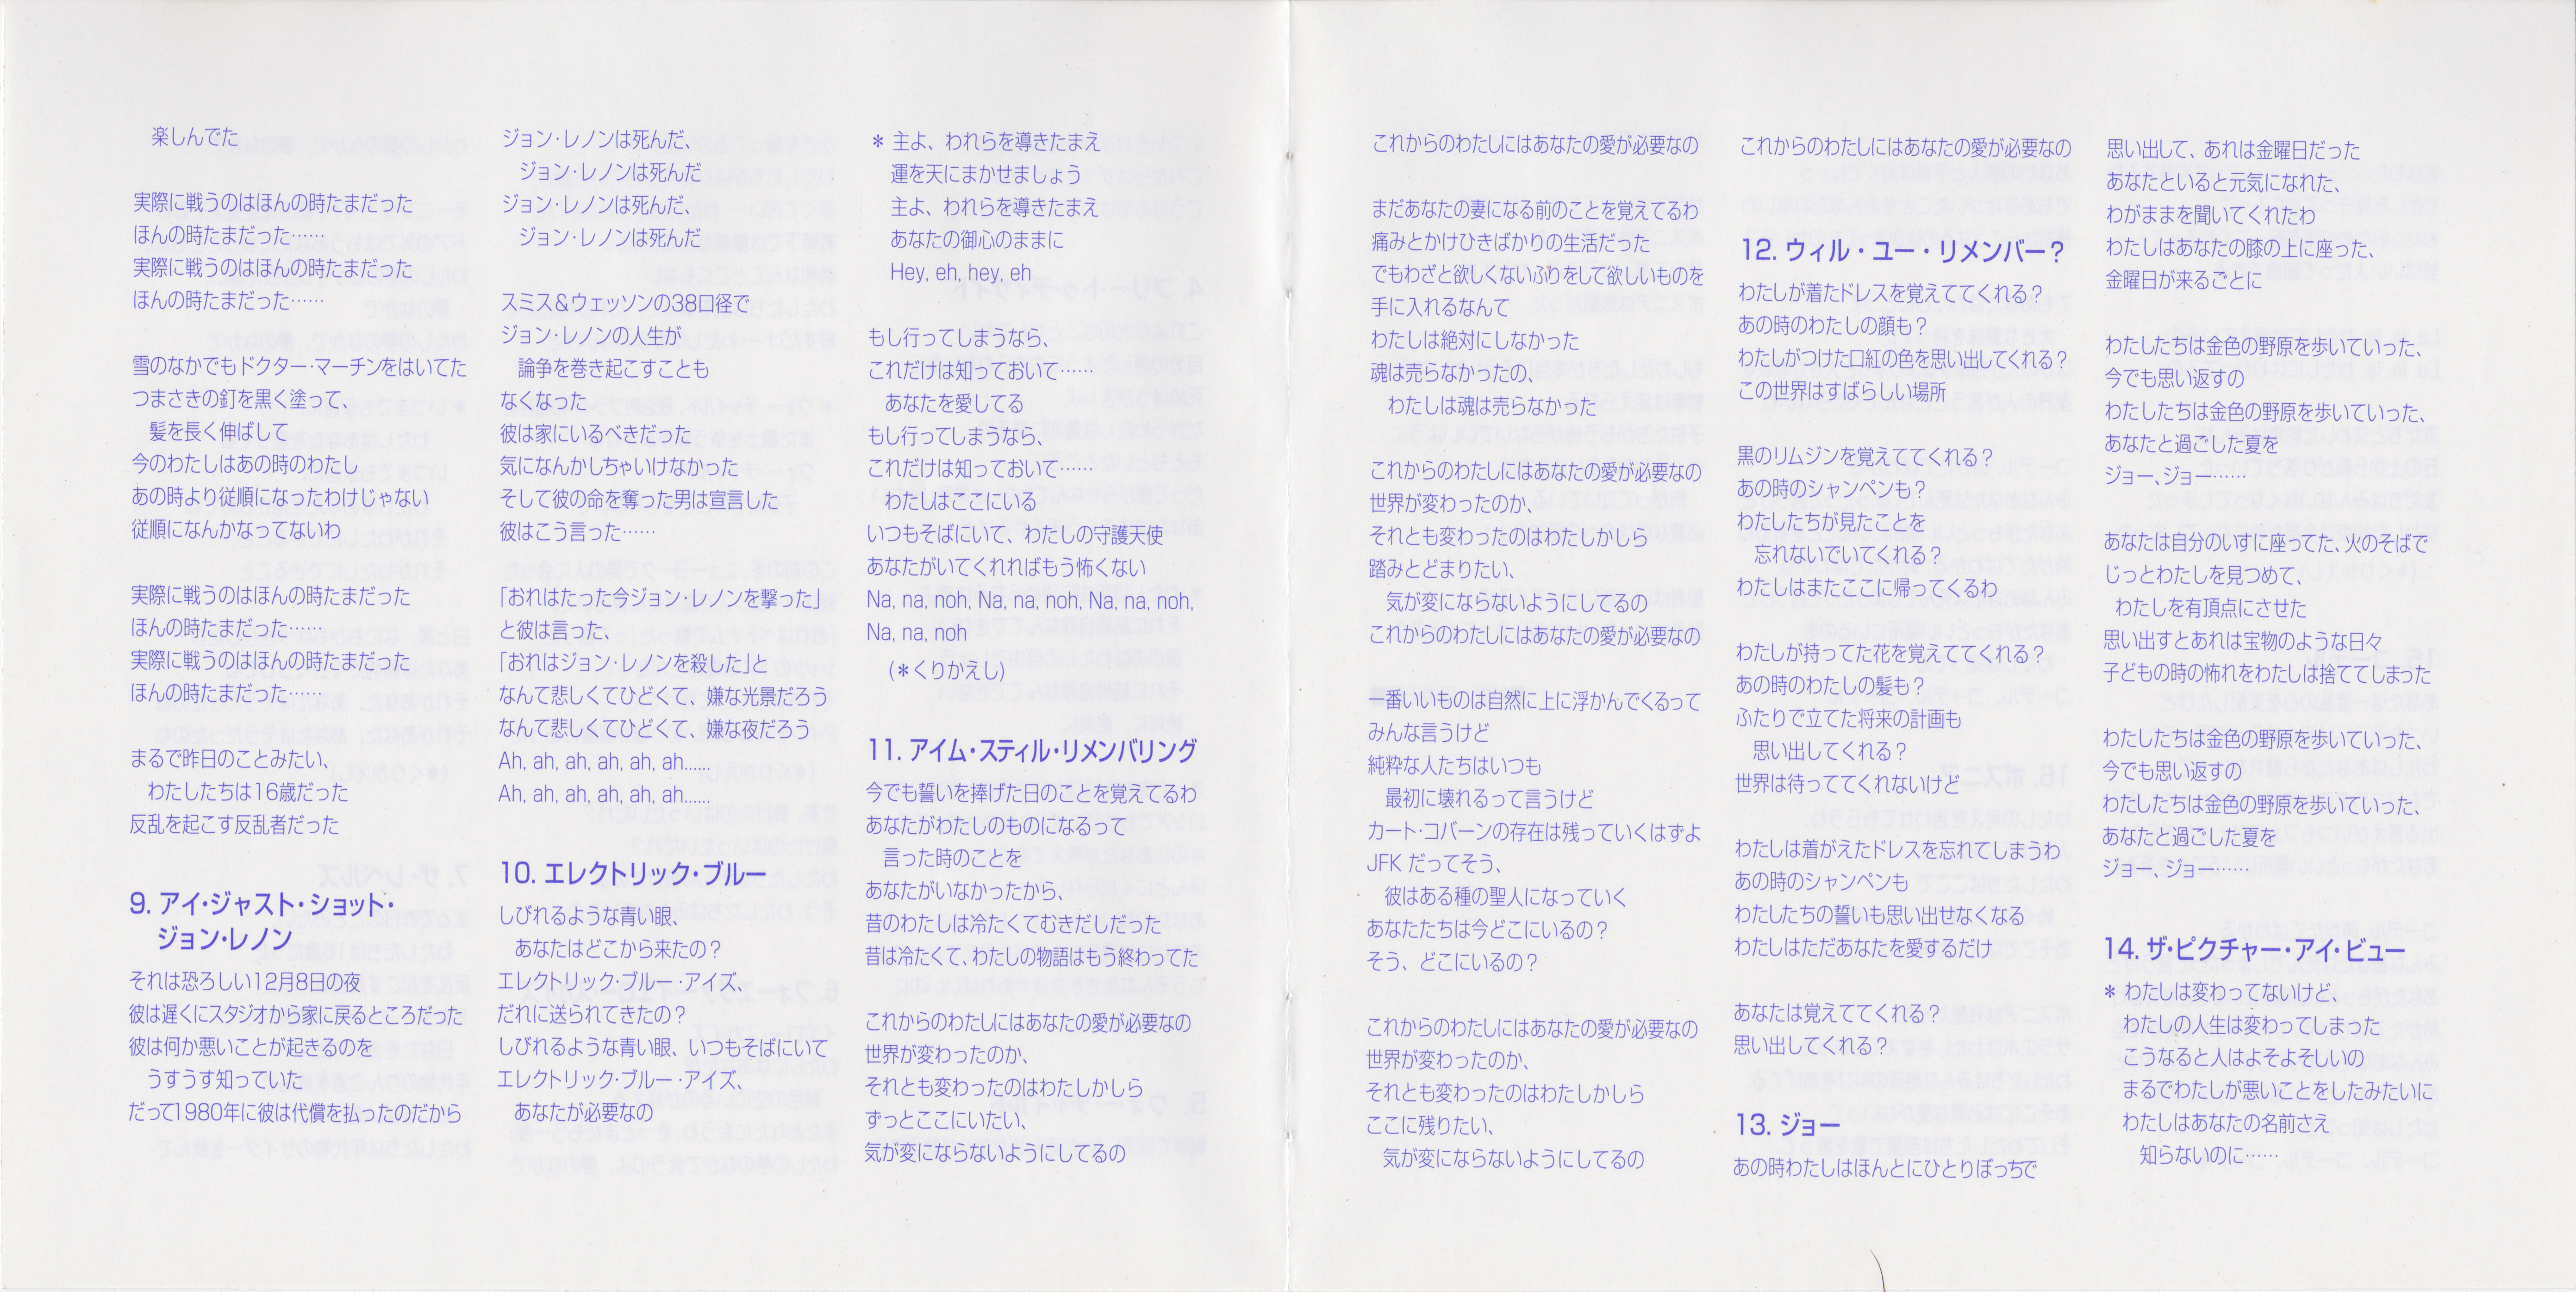 楽しんでた
実際に戦うのはほんの時たまだった
ほんの時たまだった……
実際に戦うのはほんの時たまだった
ほんの時たまだった……
雪のなかでもドクター・マーチンをはいてた
つまさきの釘を黒く塗って、
髪を長く伸ばして
今のわたしはあの時のわたし
あの時より従順になったわけじゃない
従順になんかなってないわ
実際に戦うのはほんの時たまだった
ほんの時たまだった……
実際に戦うのはほんの時たまだった
ほんの時たまだった……
まるで昨日のことみたい、
わたしたちは16歳だった
反乱を起こす反乱者だった
9. アイ・ジャスト・ショット・
ジョン・レノン
それは恐ろしい12月8日の夜
彼は遅くにスタジオから家に戻るところだった
彼は何か悪いことが起きるのを
うすうす知っていた
だって1980年に彼は代償を払ったのだから
ジョン・レノンは死んだ、
ジョン・レノンは死んだ
ジョン・レノンは死んだ、
ジョン・レノンは死んだ
スミス&ウェッソンの38口径で
ジョン・レノンの人生が
論争を巻き起こすことも
なくなった
彼は家にいるべきだった
気になんかしちゃいけなかった
そして彼の命を奪った男は宣言した
彼はこう言った……
「おれはたった今ジョン・レノンを撃った」
と彼は言った、
「おれはジョン・レノンを殺した」と
なんて悲しくてひどくて、嫌な光景だろう
なんて悲しくてひどくて、嫌な夜だろう
Ah, ah, ah, ah, ah, ah……
Ah, ah, ah, ah, ah, ah……
10. エレクトリック・ブルー
しびれるような青い眼、
あなたはどこから来たの?
エレクトリック・ブルー・アイズ、
だれに送られてきたの?
しびれるような青い眼、いつもそばにいて
エレクトリック・ブルー・アイズ、
あなたが必要なの
* 主よ、われらを導きたまえ
運を天にまかせましょう
主よ、われらを導きたまえ
あなたの御心のままに
Hey, eh, hey, eh
もし行ってしまうなら、
これだけは知っておいて……
あなたを愛してる
もし行ってしまうなら、
これだけは知っておいて……
わたしはここにいる
いつもそばにいて、わたしの守護天使
あなたがいてくれればもう怖くない
Na, na, noh, Na, na, noh, Na, na, noh,
Na, na, noh
(*くりかえし)
11. アイム・スティル・リメンバリング
今でも誓いを捧げた日のことを覚えてるわ
あなたがわたしのものになるって
言った時のことを
あなたがいなかったから、
昔のわたしは冷たくてむきだしだった
昔は冷たくて、わたしの物語はもう終わってた
これからのわたしにはあなたの愛が必要なの
世界が変わったのか、
それとも変わったのはわたしかしら
ずっとここにいたい、
気が変にならないようにしてるの
これからのわたしにはあなたの愛が必要なの
まだあなたの妻になる前のことを覚えてるわ
痛みとかけひきばかりの生活だった
でもわざと欲しくないふりをして欲しいものを
手に入れるなんて
わたしは絶対にしなかった
魂は売らなかったの、
わたしは魂は売らなかった
これからのわたしにはあなたの愛が必要なの
世界が変わったのか、
それとも変わったのはわたしかしら
踏みとどまりたい、
気が変にならないようにしてるの
これからのわたしにはあなたの愛が必要なの
一番いいものは自然に上に浮かんでくるって
みんな言うけど
純粋な人たちはいつも
最初に壊れるって言うけど
カート・コバーンの存在は残っていくはずよ
JFK だってそう、
彼はある種の聖人になっていく
あなたたちは今どこにいるの?
そう、どこにいるの?
これからのわたしにはあなたの愛が必要なの
世界が変わったのか、
それとも変わったのはわたしかしら
ここに残りたい、
気が変にならないようにしてるの
これからのわたしにはあなたの愛が必要なの
12. ウィル・ユー・リメンバー?
わたしが着たドレスを覚えててくれる?
あの時のわたしの顔も?
わたしがつけた口紅の色を思い出してくれる?
この世界はすばらしい場所
黒のリムジンを覚えててくれる?
あの時のシャンペンも?
わたしたちが見たことを
忘れないでいてくれる?
わたしはまたここに帰ってくるわ
わたしが持ってた花を覚えててくれる?
あの時のわたしの髪も?
ふたりで立てた将来の計画も
思い出してくれる?
世界は待っててくれないけど
わたしは着がえたドレスを忘れてしまうわ
あの時のシャンペンも
わたしたちの誓いも思い出せなくなる
わたしはただあなたを愛するだけ
あなたは覚えててくれる?
思い出してくれる?
13. ジョー
あの時わたしはほんとにひとりぼっちで
思い出して、あれは金曜日だった
あなたといると元気になれた、
わがままを聞いてくれたわ
わたしはあなたの膝の上に座った、
金曜日が来るごとに
わたしたちは金色の野原を歩いていった、
今でも思い返すの
わたしたちは金色の野原を歩いていった、
あなたと過ごした夏を
ジョー、ジョー……
あなたは自分のいすに座ってた、火のそばで
じっとわたしを見つめて、
わたしを有頂点にさせた
思い出すとあれは宝物のような日々
子どもの時の怖れをわたしは捨ててしまった
わたしたちは金色の野原を歩いていった、
今でも思い返すの
わたしたちは金色の野原を歩いていった、
あなたと過ごした夏を
ジョー、ジョー……
14. ザ・ピクチャー・アイ・ビュー
* わたしは変わってないけど、
わたしの人生は変わってしまった
こうなると人はよそよそしいの
まるでわたしが悪いことをしたみたいに
わたしはあなたの名前さえ
知らないのに……